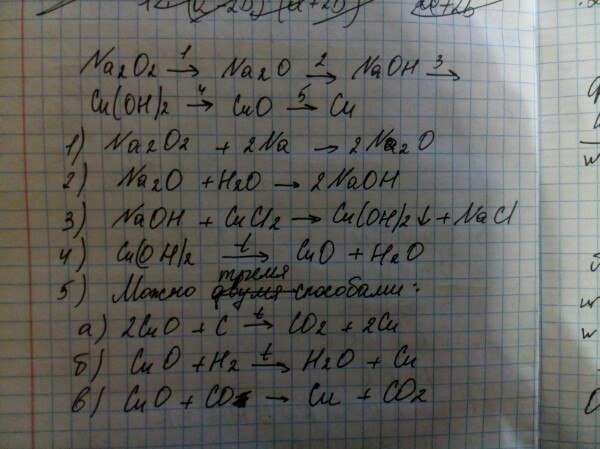 Na₂O₂ →¹ Na₂O →² NaOH →³
Cu(OH)₂ →⁴ CuO →⁵ Cu
1) Na₂O₂ + 2Na → 2Na₂O
2) Na₂O + H₂O → 2NaOH
3) NaOH + CuCl₂ → Cu(OH)₂↓ + NaCl
4) Cu(OH)₂ →ᵗ CuO + H₂O
тремя
5) Можно двумя способами:
а) 2CuO + C →ᵗ CO₂ + 2Cu
б) CuO + H₂ →ᵗ H₂O + Cu
в) CuO + CO → Cu + CO₂